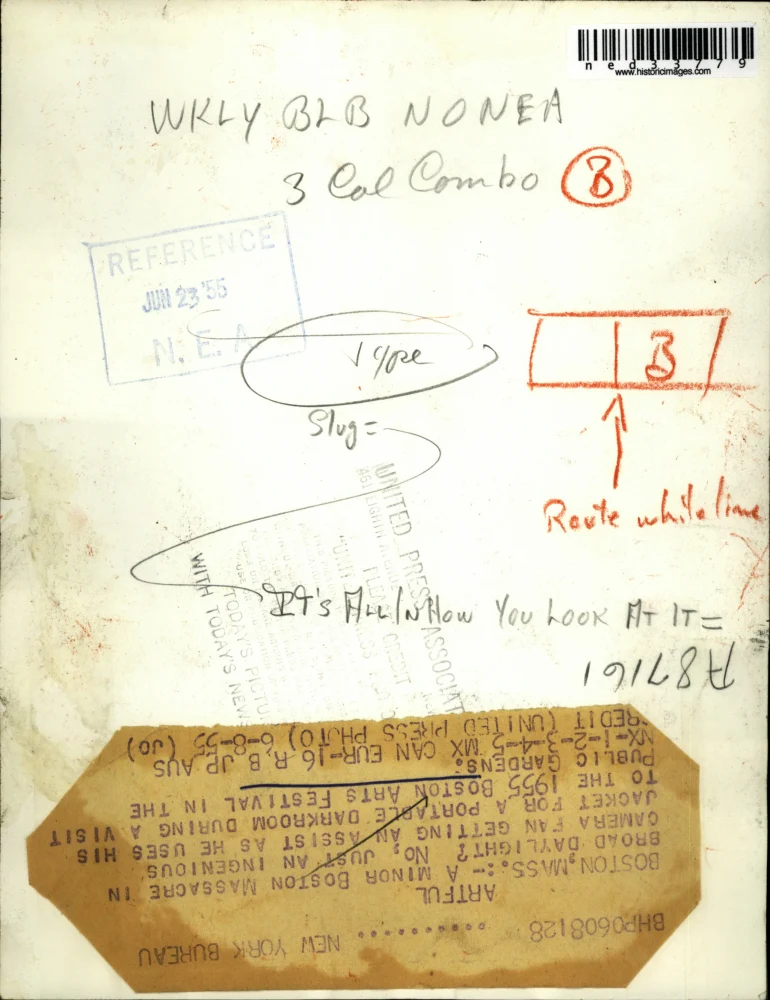 ned33779
www.historicimages.com
WKLY BLB NONEA
3 Col Combo B
REFERENCE
JUN 23 '55
N. E. A
Type
B
Slug =
Route white line
UNITED PRESS ASSOCIAT
WITH TODAY'S NEW
TODAY'S PICTU
It's All In How You Look At It =
A87161
BHP0608128 .......... NEW YORK BUREAU
ARTFUL
BOSTON, MASS.:- A MINOR BOSTON MASSACRE IN
BROAD DAYLIGHT? NO, JUST AN INGENIOUS
CAMERA FAN GETTING AN ASSIST AS HE USES HIS
JACKET FOR A PORTABLE DARKROOM DURING A VISIT
TO THE 1955 BOSTON ARTS FESTIVAL IN THE
PUBLIC GARDENS.
NX-1-2-3-4-5 MX CAN EUR-16 R, B JP AUS
REDIT (UNITED PRESS PHOTO) 6-8-55 (JO)